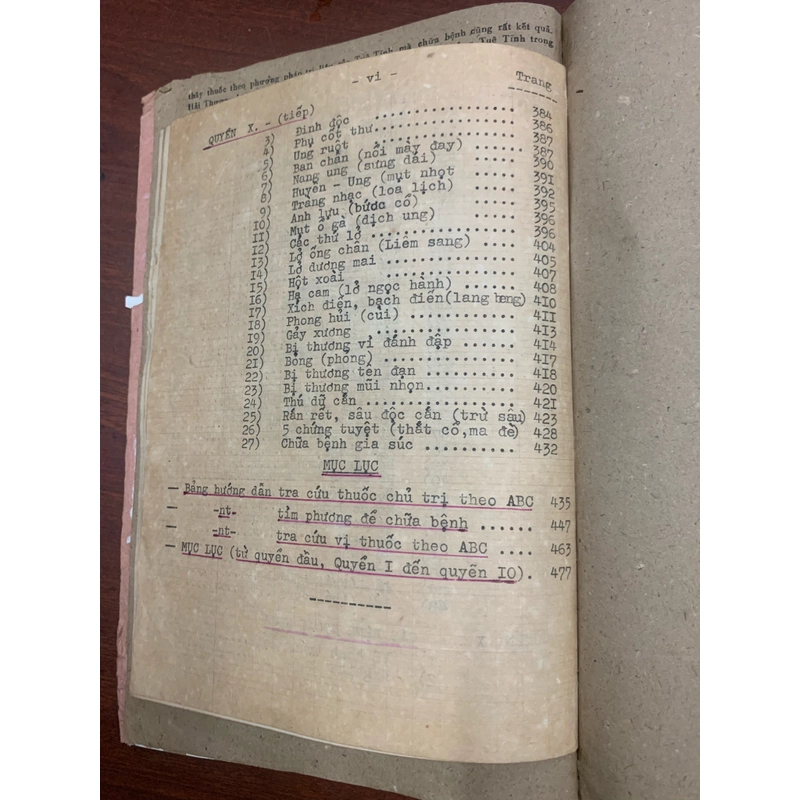 thầy thuốc theo phương pháp trị liệu của Tuệ Tĩnh mà chữa bệnh cũng rất kết quả.
Hải Thượng Tuệ Tĩnh trong
- vi -
Trang
QUYỂN X. - (tiếp)
3) Đinh độc .................. 384
4) Phụ cốt thư .................. 386
5) Ung ruột .................. 387
6) Ban chẩn (nổi mày đay) ..... 387
7) Nang ung (sưng dái) ..... 390
8) Huyền - Ung (mụt nhọt ..... 391
9) Tràng nhạc (loa lịch) ..... 392
10) Anh lựu (bức cổ) ..... 395
11) Mụt ổ gà (dịch ung) ..... 396
12) Các thứ lở .................. 396
13) Lở ống chân (Liêm sang) .... 404
14) Lở dương mai .............. 405
15) Hột xoài .............. 407
16) Hạ cam (lở ngọc hành) ..... 408
17) Xích điến, bạch điến(lang beng) 4I0
18) Phong hủi (cùi) ........ 4II
19) Gẫy xương ........ 4I3
20) Bị thương vì đánh đập ...... 4I4
2I) Bỏng (phỏng) ............ 4I7
22) Bị thương tên đạn ........ 4I8
23) Bị thương mũi nhọn......... 420
24) Thú dữ cắn .............. 42I
25) Rắn rết, sâu độc cắn (trừ sâu) 423
26) 5 chứng tuyệt (thất cổ,ma đè) 428
27) Chữa bệnh gia súc .......... 432
MỤC LỤC
- Bảng hướng dẫn tra cứu thuốc chủ trị theo ABC 435
- -nt- tìm phương để chữa bệnh ...... 447
- -nt- tra cứu vị thuốc theo ABC .... 463
- MỤC LỤC (từ quyển đầu, Quyển I đến quyển IO). 477